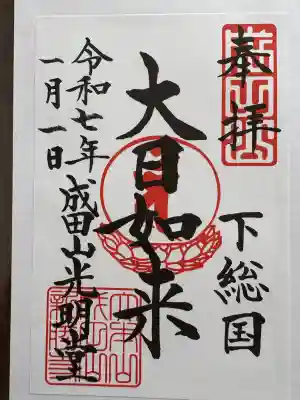 奉拝
下総国
大日如来
成田山光明堂
令和七年
一月一日